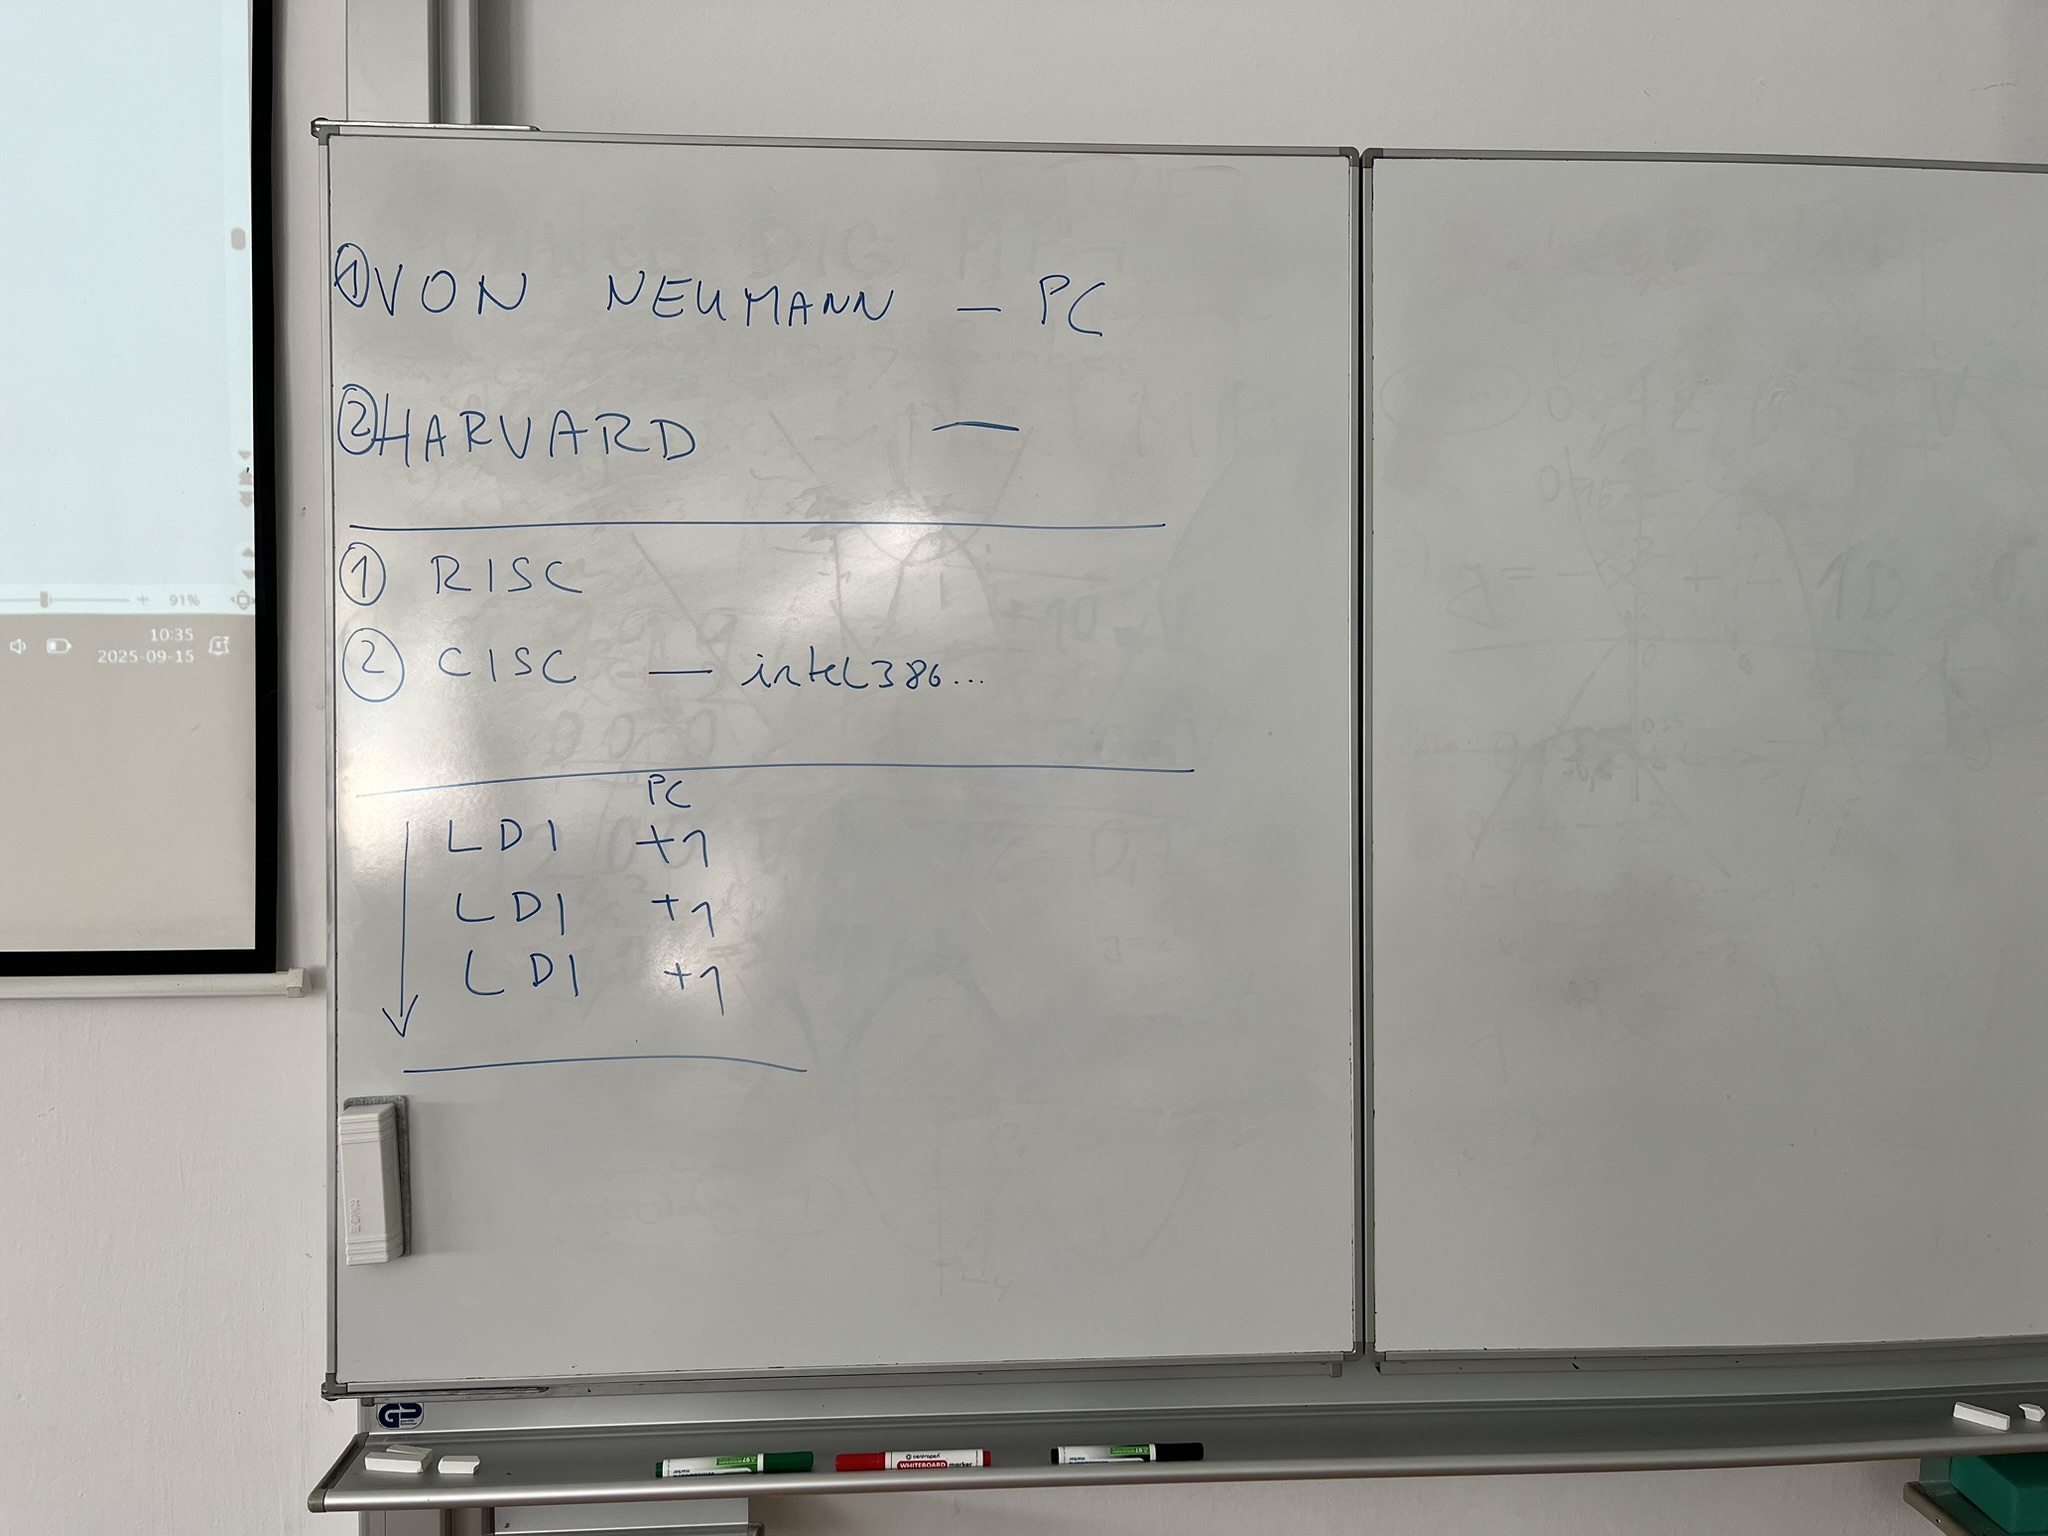 91%
10:35
2025-09-15
① VON NEUMANN – PC
② HARVARD —
① RISC
② CISC — intel 386...
PC
LDI +1
LDI +1
LDI +1
GP
centropen
WHITEBOARD marker